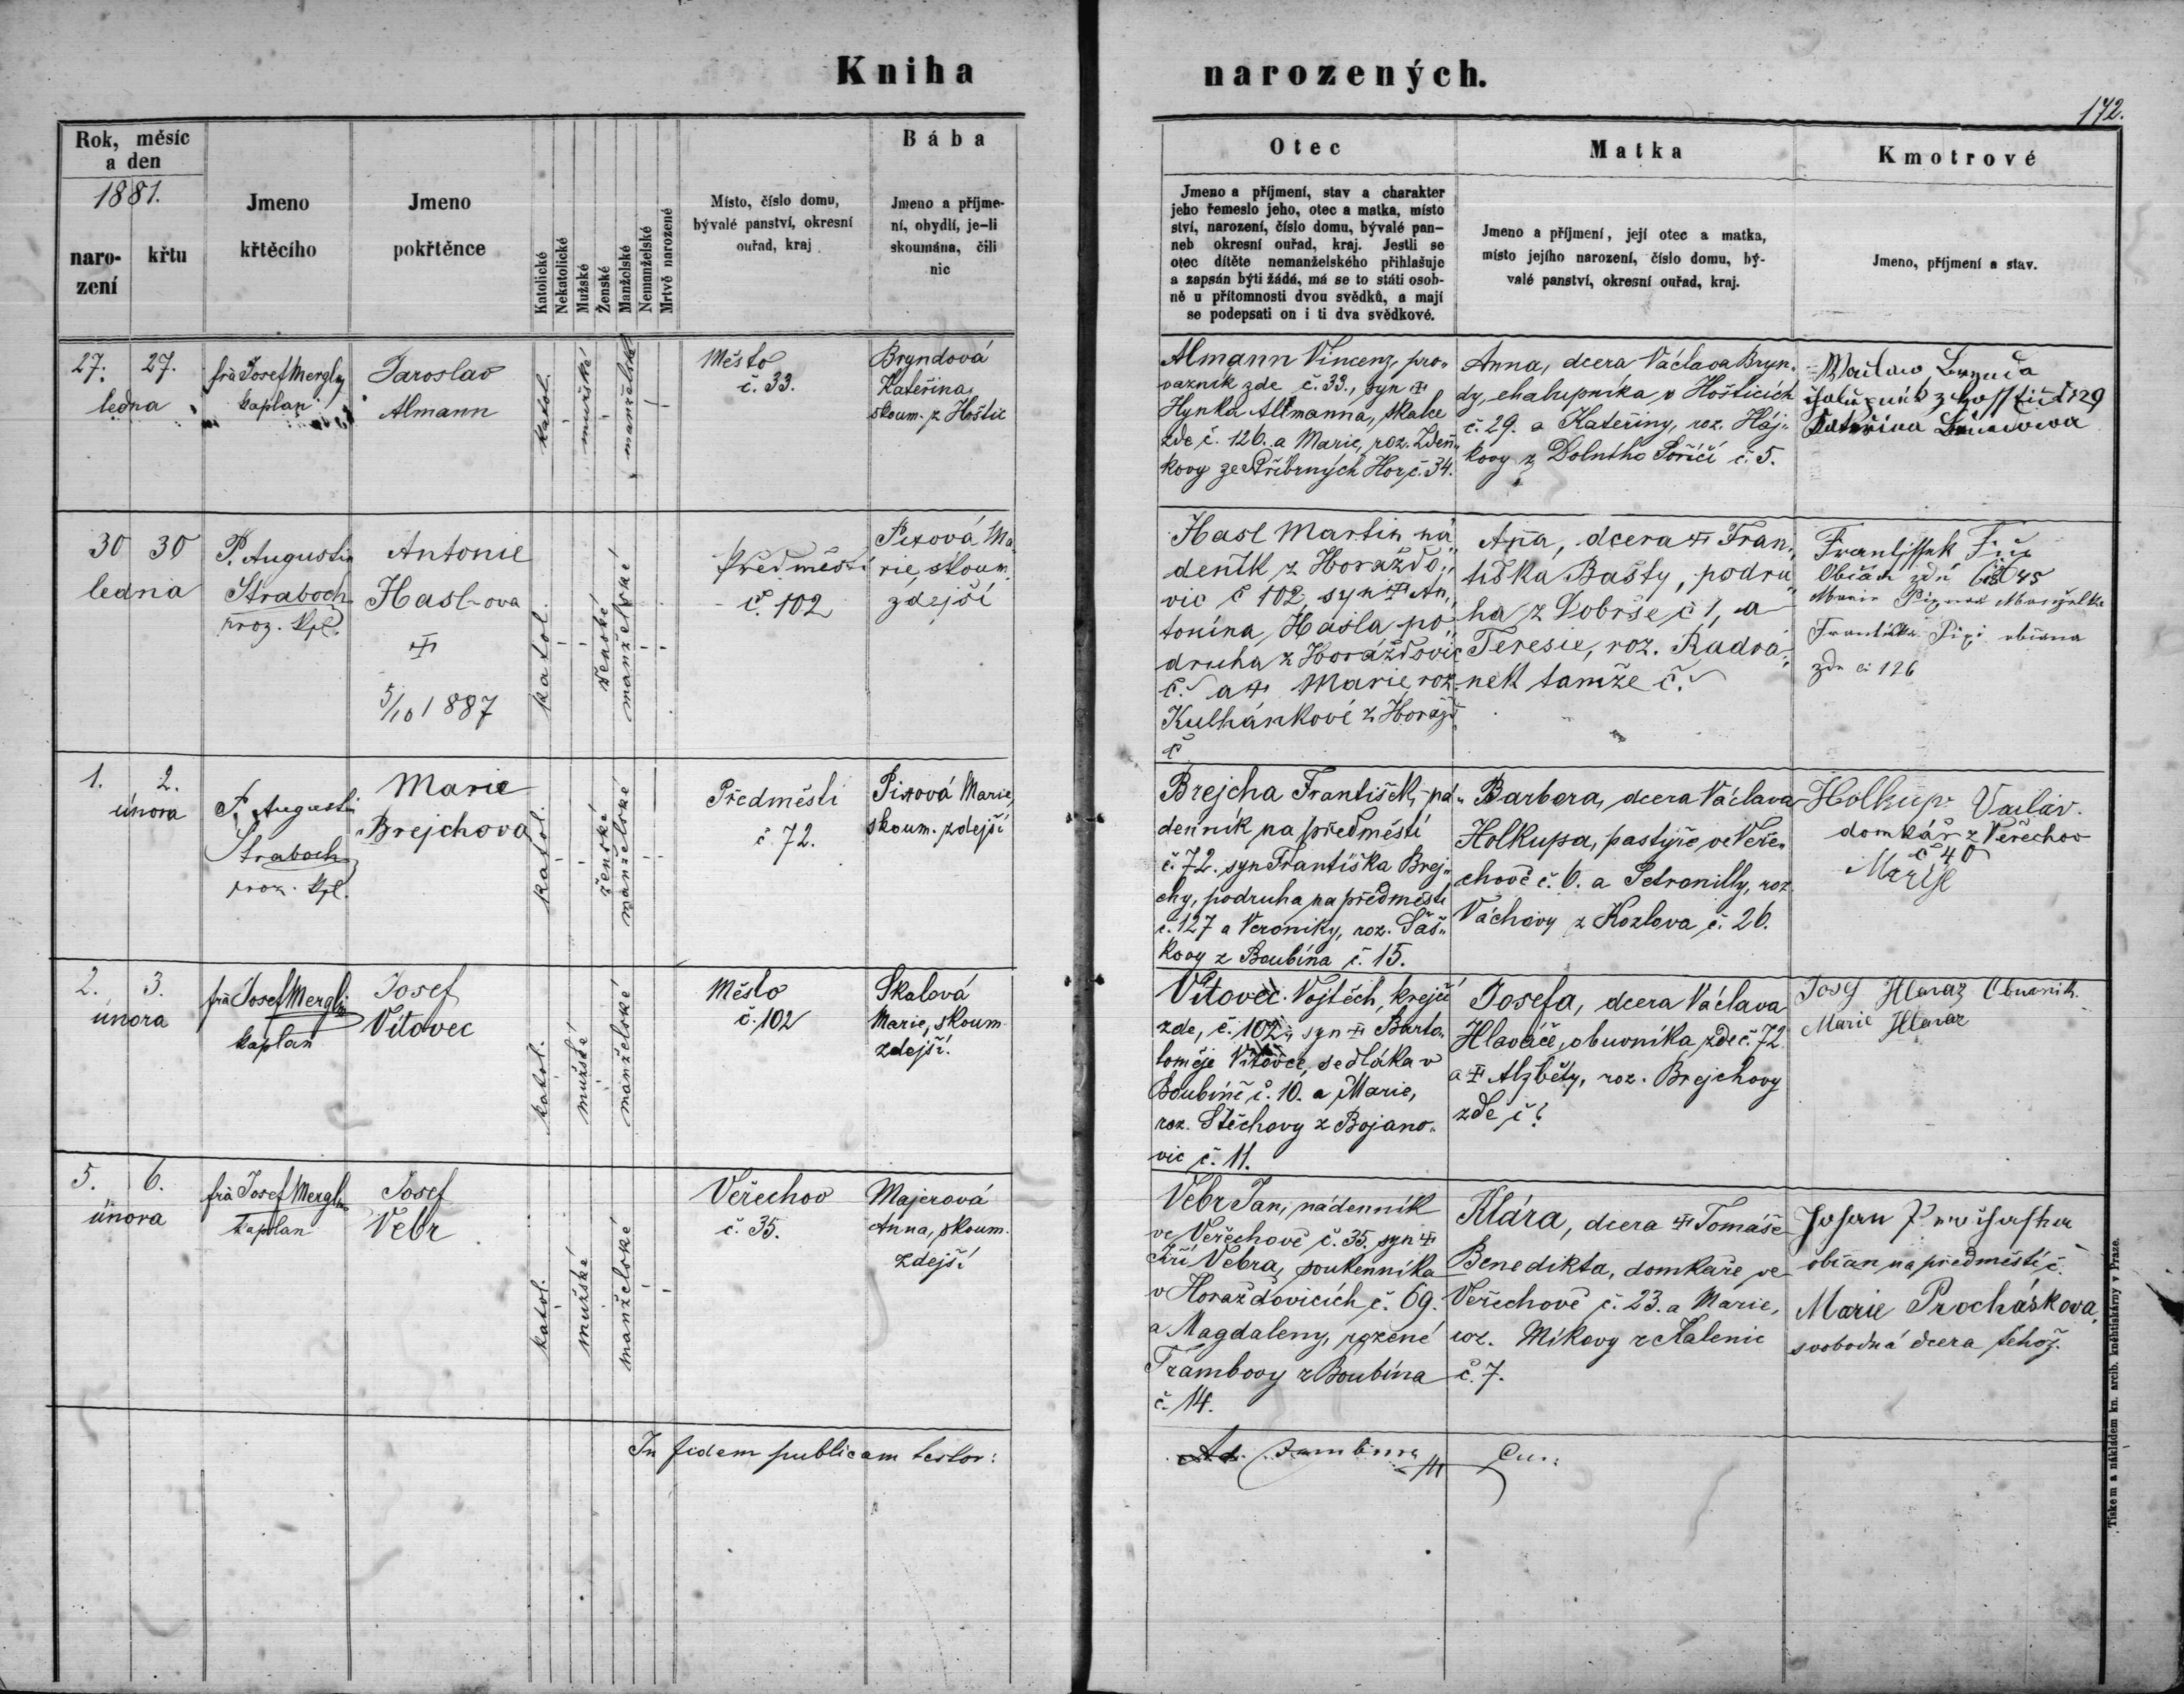 Kniha
narozených.
172.
Rok, měsíc
a den
1881.
naro-
zení
křtu
Jmeno
křtěcího
Jmeno
pokřtěnce
Katolické
Nekatolické
Mužské
Ženské
Manželské
Nemanželské
Mrtvě narozené
Místo, číslo domu,
bývalé panství, okresní
ouřad, kraj
Bába
Jmeno a příjme-
ní, obydlí, je-li
skoumána, čili
nic
Otec
Jmeno a příjmení, stav a charakter
jeho řemeslo jeho, otec a matka, místo
ství, narození, číslo domu, bývalé pan-
neb okresní ouřad, kraj. Jestli se
otec dítěte nemanželského přihlašuje
a zapsán býti žádá, má se to státi osob-
ně u přítomnosti dvou svědků, a mají
se podepsati on i ti dva svědkové.
Matka
Jmeno a příjmení, její otec a matka,
místo jejího narození, číslo domu, bý-
valé panství, okresní ouřad, kraj.
Kmotrové
Jmeno, příjmení a stav.
27. 27.
ledna
frà Josef Mergl
kaplan
Jaroslav
Almann
katol.
mužské
manželské
Město
č. 33.
Bryndová
Kateřina
skoum. z Hoštic
Almann Vincenz, pro-
vazník zde č. 33., syn
Hynka Allmanna, skalce
zde č. 126. a Marie, roz. Zdeň-
kovy ze Stříbrných Hor č. 34.
Anna, dcera Václava Bryn-
dy, chalupníka v Hošticích
č. 29. a Kateřiny, roz. Háj-
kovy z Dolního Poříčí č. 5.
30 30
ledna
P. Augustin
Straboch
proz. kpl.
Antonie
Hasl-ova
5/10 1887
katol.
ženské
manželské
Předměstí
č. 102
Pixová Ma-
rie, skoum.
zdejší
Hasl Martin ná-
deník z Horažďo-
vic č 102, syn An-
tonína Hasla po-
druha z Horažďovic
č. a Marie, roz.
Kulhánkoví z Horažď.
č
Anna, dcera Fran-
tiška Bašty, podru-
ha z Dobrše č 1, a
Teresie, roz. Radvá-
nek tamže č.
Frantissek
zde č 126
1. 2.
února
P. Augustin
Straboch
proz. kpl.
Marie
Brejchova
katol.
ženské
manželské
Předměstí
č. 72.
Pixová Marie,
skoum. zdejší
Brejcha František, ná-
denník na předměstí
č. 72. syn Františka Brej-
chy, podruha na předměstí
č. 127 a Veroniky, roz. Šaš-
kovy z Boubína č. 15.
Barbora, dcera Václava
Holkupa, pastýře ve Veře-
chově č. 6. a Petronilly, roz.
Váchovy z Kozlova č. 26.
Holkup Vaclav.
domkář z Veřechov
č 40
2. 3.
února
frà Josef Mergl
kaplan
Josef
Vítovec
katol.
mužské
manželské
Město
č. 102
Skalová
Marie, skoum.
zdejší.
Vítovec Vojtěch, krejčí
zde, č. 102, syn Barto-
loměje Vítovce, sedláka v
Boubíně č. 10. a Marie,
roz. Štěchovy z Bojano-
vic č. 11.
Josefa, dcera Václava
Hlaváče, obuvníka zde č. 72
a Alžběty, roz. Brejchovy
zde č?
Josef Hlavaz Obuvnik
Marie Hlavaz
5. 6.
února
frà Josef Mergl
kaplan
Josef
Vebr
katol.
mužské
manželské
Veřechov
č. 35.
Majerová
Anna, skoum.
zdejší
Vebr Jan, nádenník
ve Veřechově č. 35. syn
Jiří Vebra, soukenníka
v Horažďovicích č. 69.
a Magdaleny, rozené
Trambovy z Boubína
č. 14.
Klára, dcera Tomáše
Benedikta, domkaře ve
Veřechově č. 23. a Marie,
roz. Míkovy z Kalenic
č. 7.
občan na předměstí č.
Marie Procháskova,
svobodná dcera tehož.
In fidem publicam testor:
Tiskem a nákladem kn. arcib. kněhtiskárny v Praze.